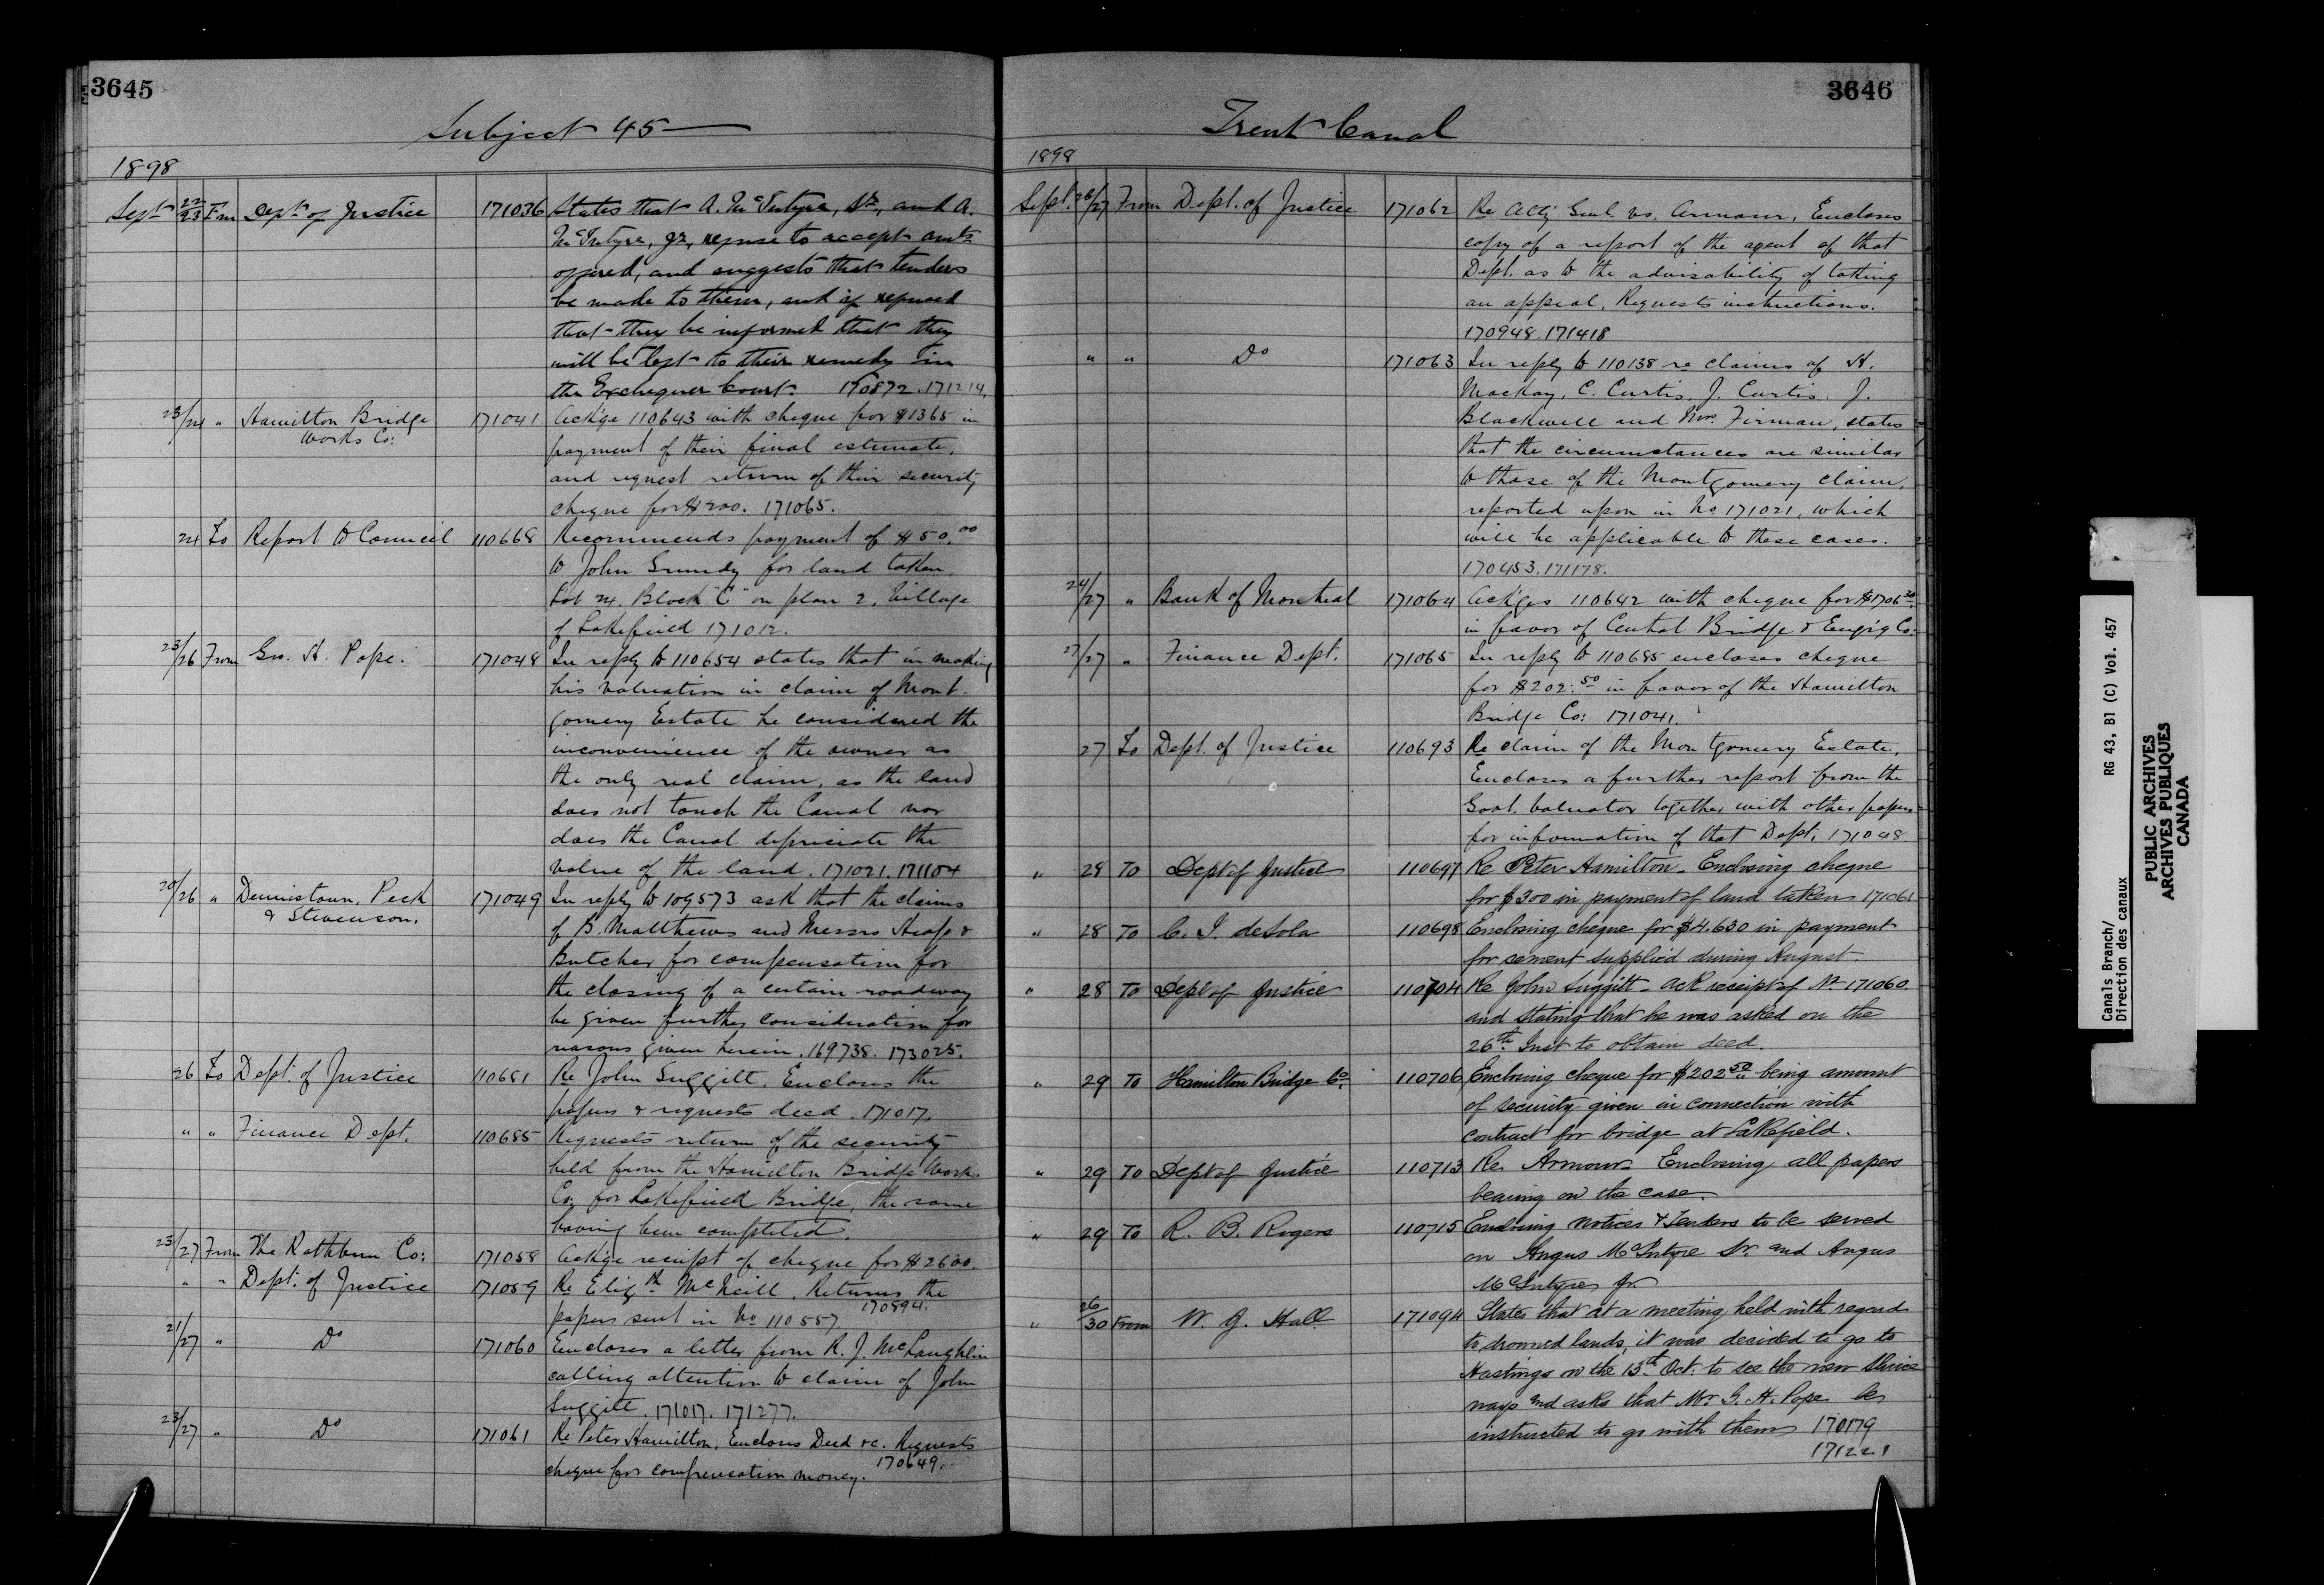 3645
Subject 45
1898
Sept 22/23 Fm Dept of Justice 171036 States that A. McIntyre, Sr, and A.
McIntyre, Jr, refuse to accept amts
offered, and suggests that tenders
be made to them, and if refused
that they be informed that they
will be left to their remedy in
the Exchequer Court. 170872. 171214.
23/24 " Hamilton Bridge 171041 Ackge 110643 with cheque for $1365 in
Works Co: payment of their final estimate,
and request return of their security
cheque for $200. 171065.
24 To Report to Council 110668 Recommends payment of $50.00
to John Grundy for land taken,
Lot 24. Block "C" on plan 2, Village
of Lakefield 171012.
23/26 From Geo. H. Pope. 171048 In reply to 110654 states that in making
his valuation in claim of Mont-
gomery Estate he considered the
inconvenience of the owner as
the only real claim, as the land
does not touch the Canal nor
does the Canal depreciate the
value of the land. 171021. 171104
20/26 " Dennistoun, Peck 171049 In reply to 109573 ask that the claims
& Stevenson. of B. Matthews and Messrs Heap &
Butcher for compensation for
the closing of a certain roadway
be given further consideration for
reasons given herein. 169738. 173025.
26 To Dept. of Justice 110681 Re John Suggitt. Encloses the
papers & requests deed. 171017.
" " Finance Dept. 110685 Requests return of the security
held from the Hamilton Bridge Works
Co: for Lakefield Bridge, the same
having been completed.
23/27 From The Rathbun Co: 171058 Ackge receipt of cheque for $2600.
" " Dept. of Justice 171059 Re Elizth McNeill. Returns the
papers sent in No 110557. 170894.
21/27 " Do 171060 Encloses a letter from R. J. McLaughlin
calling attention to claim of John
Suggitt. 171017. 171277.
23/27 " Do 171061 Re Peter Hamilton, Encloses Deed &c. Requests
cheque for compensation money. 170649.
3646
Trent Canal
1898
Sept. 26/27 From Dept. of Justice 171062 Re Atty Genl vs. Armour, Encloses
copy of a report of the agent of that
Dept. as to the advisability of taking
an appeal. Requests instructions.
170948. 171418
" " Do 171063 In reply to 110138 re claims of H.
Mackay, C. Curtis, J. Curtis, J.
Blackwell and Mrs. Firman, states
that the circumstances are similar
to those of the Montgomery claim,
reported upon in No 171021, which
will be applicable to these cases.
170453. 171178.
24/27 " Bank of Montreal 171064 Ackges 110642 with cheque for $1706.30
in favor of Central Bridge & Eng'g Co:
27/27 " Finance Dept. 171065 In reply to 110685 encloses cheque
for $202.50 in favor of the Hamilton
Bridge Co: 171041.
27 To Dept. of Justice 110693 Re claim of the Montgomery Estate,
Encloses a further report from the
Govt. Valuator together with other papers
for information of that Dept. 171048
" 28 To Dept of Justice 110697 Re Peter Hamilton - Enclosing cheque
for $300 in payment of land taken 171061
" 28 To C. I. deSola 110698 Enclosing cheque for $4.630 in payment
for cement supplied during August.
" 28 To Dept of Justice 110704 Re John Suggitt - Ack receipt of No 171060
and stating that he was asked on the
26th Inst to obtain deed.
" 29 To Hamilton Bridge Co. 110706 Enclosing cheque for $202.50 being amount
of security given in connection with
contract for bridge at Lakefield.
" 29 To Dept of Justice 110713 Re. Armour - Enclosing all papers
bearing on the case.
" 29 To R. B. Rogers 110715 Enclosing notices & Tenders to be served
on Angus McIntyre Sr. and Angus
McIntyre Jr.
" 26/30 From W. J. Hall. 171094 States that at a meeting held with regard
to drowned lands, it was decided to go to
Hastings on the 13th Oct. to see the new sluice
ways and asks that Mr. G. H. Pope be
instructed to go with them 170179
171221
Canals Branch/ RG 43, B1 (C) Vol. 457
Direction des canaux
PUBLIC ARCHIVES
ARCHIVES PUBLIQUES
CANADA